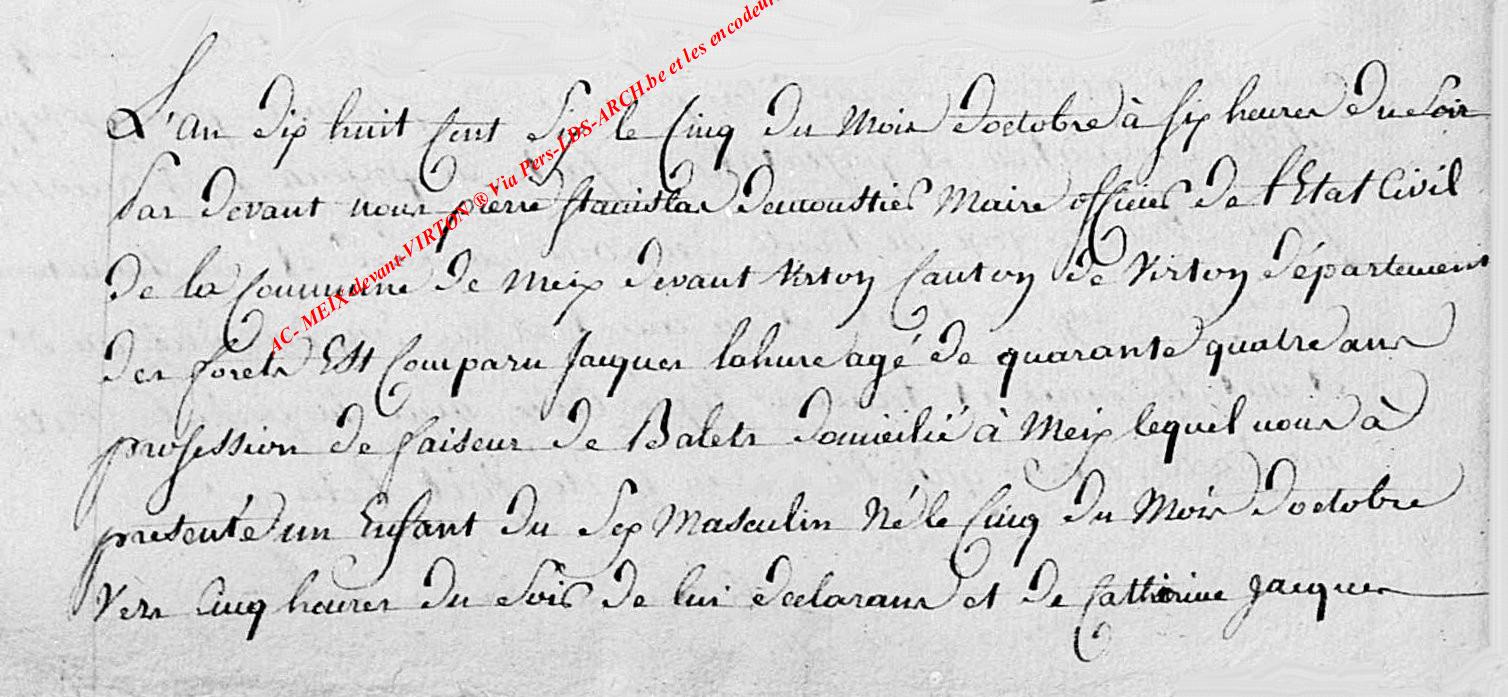 L'an dix huit Cent Six le Cinq du Mois d'octobre à six heures du Soir
Par devant nous pierre stanislas demoustier Maire officier de l'Etat Civil
de la Commune de Meix devant Virton Canton de Virton département
des forets Est Comparu Jacques lahure agé de quarante quatre ans
profession de faiseur de Balets domicilié à Meix lequel nous à
presenté un Enfant du Sex Masculin Né le Cinq du Mois d'octobre
Vers Cinq heures du Soir de lui declarans et de Catherine Jacques
AC- MEIX-devant-VIRTON ® Via Pers-LDS-ARCH.be et les encodeurs